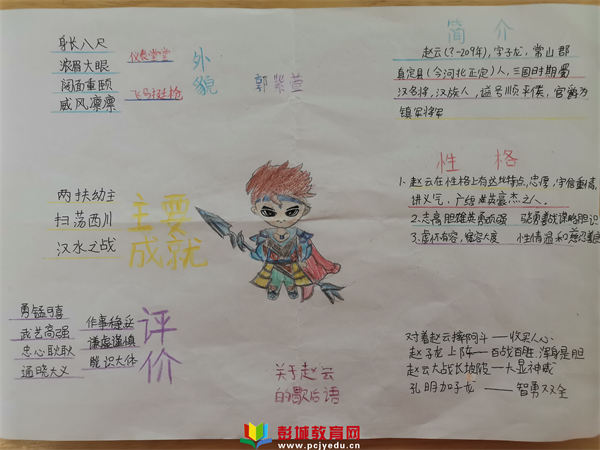 身长八尺
浓眉大眼
阔面重颐
威风凛凛
仪表堂堂
外貌
郭紫萱
简介
赵云(?-209年),字子龙,常山郡
真定县(今河北正定)人,三国时期蜀
汉名将,汉族人,谥号顺平侯,官爵为
镇军将军
性格
1.赵云在性格上有这些特点,忠厚,守信重情,
讲义气,广结英豪杰之人。
2.志高胆雄英勇顽强
3.虚怀若容,宽容大度 性情温和
两扶幼主
扫荡西川
汉水之战
主要
成就
勇猛
武艺高强
忠心耿耿
通晓大义
作事稳妥
谦虚谨慎
能识大体
评价
关于赵云
的歇后语
对着赵云摔阿斗——收买人心
赵子龙上阵——百战百胜,浑身是胆
赵云大战长坂坡——大显神威
孔明加子龙——智勇双全
彭城教育网
www.pcjyedu.cn